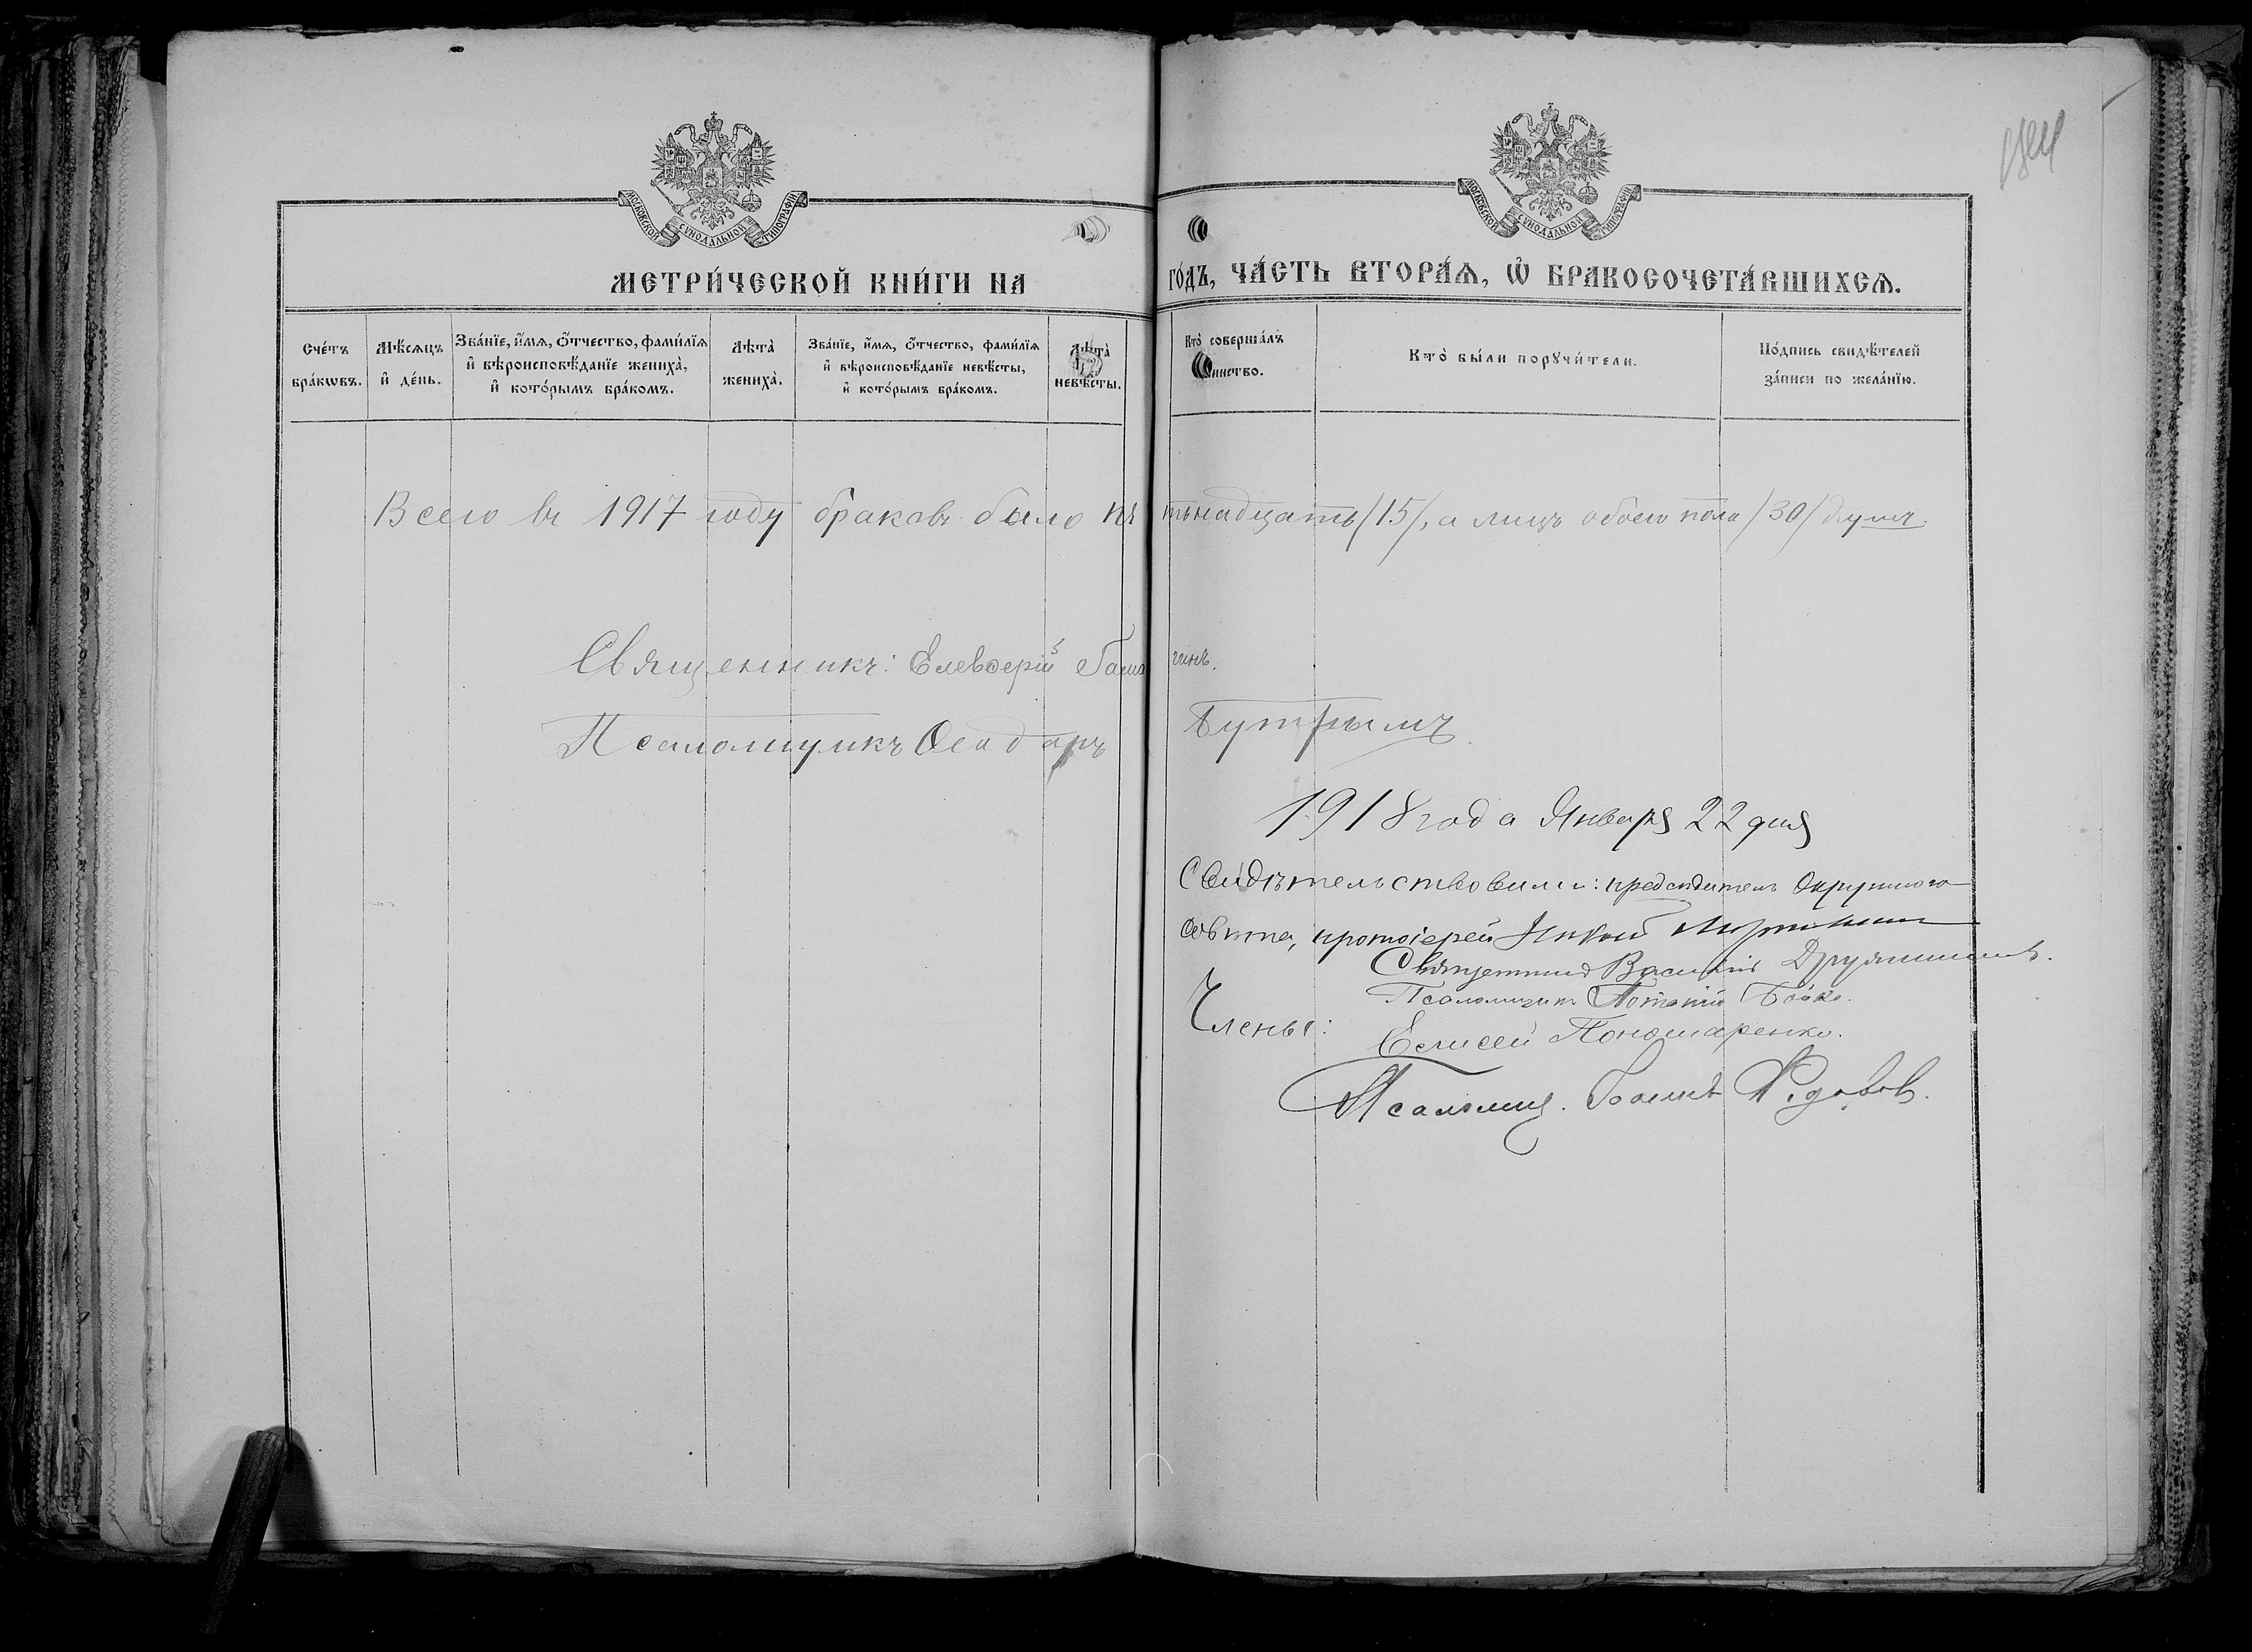 МОСКОВСКОЙ СѴНОДАЛЬНОЙ ТИПОГРАФІИ
МОСКОВСКОЙ СѴНОДАЛЬНОЙ ТИПОГРАФІИ
МЕТРИ́ЧЕСКОЙ КНИ́ГИ НА ГО́ДЪ, ЧА́СТЬ ВТОРА́Ѧ, Ѽ БРАКОСОЧЕТА́ВШИХСѦ.
Сче́тъ бра́кѡвъ.
Мѣ́сѧцъ и҆ де́нь.
Зва́нїе, и҆́мѧ, ѻ҆́тчество, фами́лїѧ и҆ вѣроисповѣ́данїе жениха̀, и҆ кото́рымъ бра́комъ.
Лѣта̀ жениха̀.
Зва́нїе, и҆́мѧ, ѻ҆́тчество, фами́лїѧ и҆ вѣроисповѣ́данїе невѣ́сты, и҆ кото́рымъ бра́комъ.
Лѣта̀ невѣ́сты.
Кто̀ соверша́лъ
Кто̀ бы́ли порꙋчи́тели.
По́дпись свидѣ́телей за́писи по жела́нїю.
Всего въ 1917 году браковъ было пятьнадцать /15/, а лицъ обоего пола /30/ душъ.
Священникъ: Елевѳерій
Псаломщикъ Бутрымъ
1918 года Января 22 дня
Свидѣтельствовали: предсѣдатель Окружного
совѣта, протоіерей
Священник Василій
Члены:
Псаломщик Потапій Бойко.
Елисей Пономаренко.
Псаломщ.